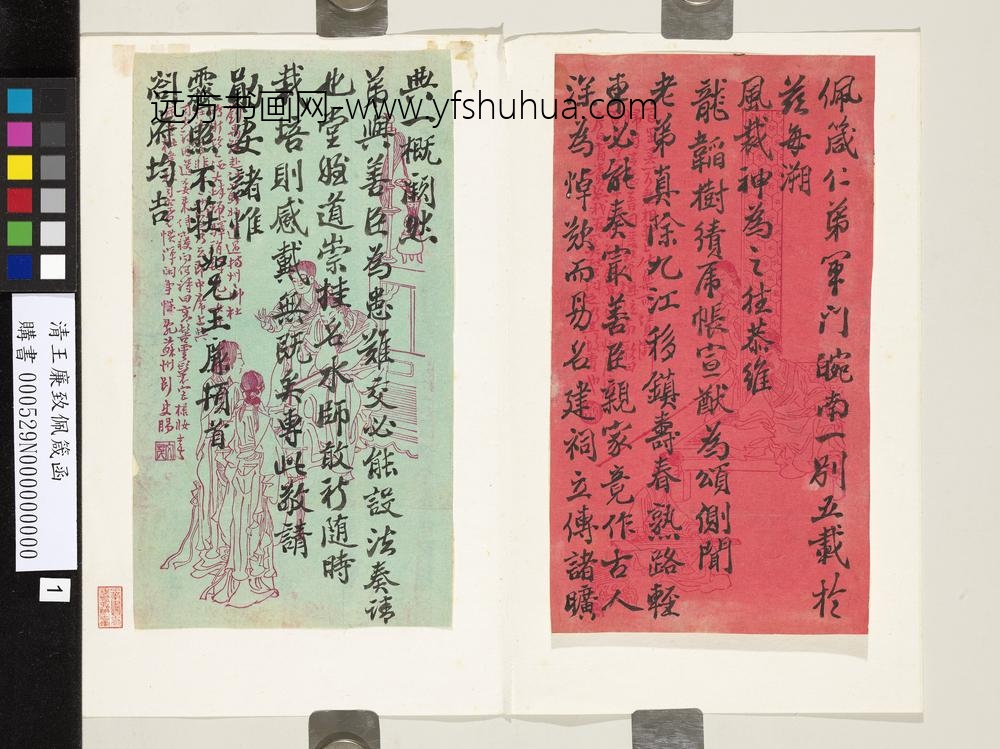 佩箴仁弟軍門晼南一別五載於
茲每溯
風裁神為之往恭維
龍韜樹績席帳宣猷為頌側聞
老弟真除九江移鎮壽春熟路輕
車必能奏最善臣親家竟作古人
深為悼歎而易名建祠立傳諸曠
典一概闕然
弟與善臣為患難交必能設法奏請
也堂姪道崇挂名水師敢祈隨時
栽培則感戴無既矣專此敬請
勛安諸惟
霽照不莊 如兄王廉頓首
閤府均吉
远方书画网-www.yfshuhua.com
清王廉致佩箴函
購書 000529N000000000
1